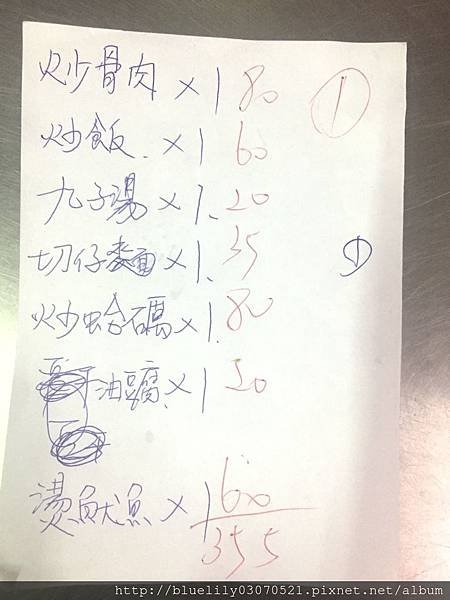 炒骨肉 x1 80 ①
炒飯. x1 60
九子湯 x1. 20
切仔麵 x1. 35 ①
炒蛤碼 x1. 80
油豆腐. x1 20
燙魷魚 x1 60
355
http://bluelily03070521.pixnet.net/album